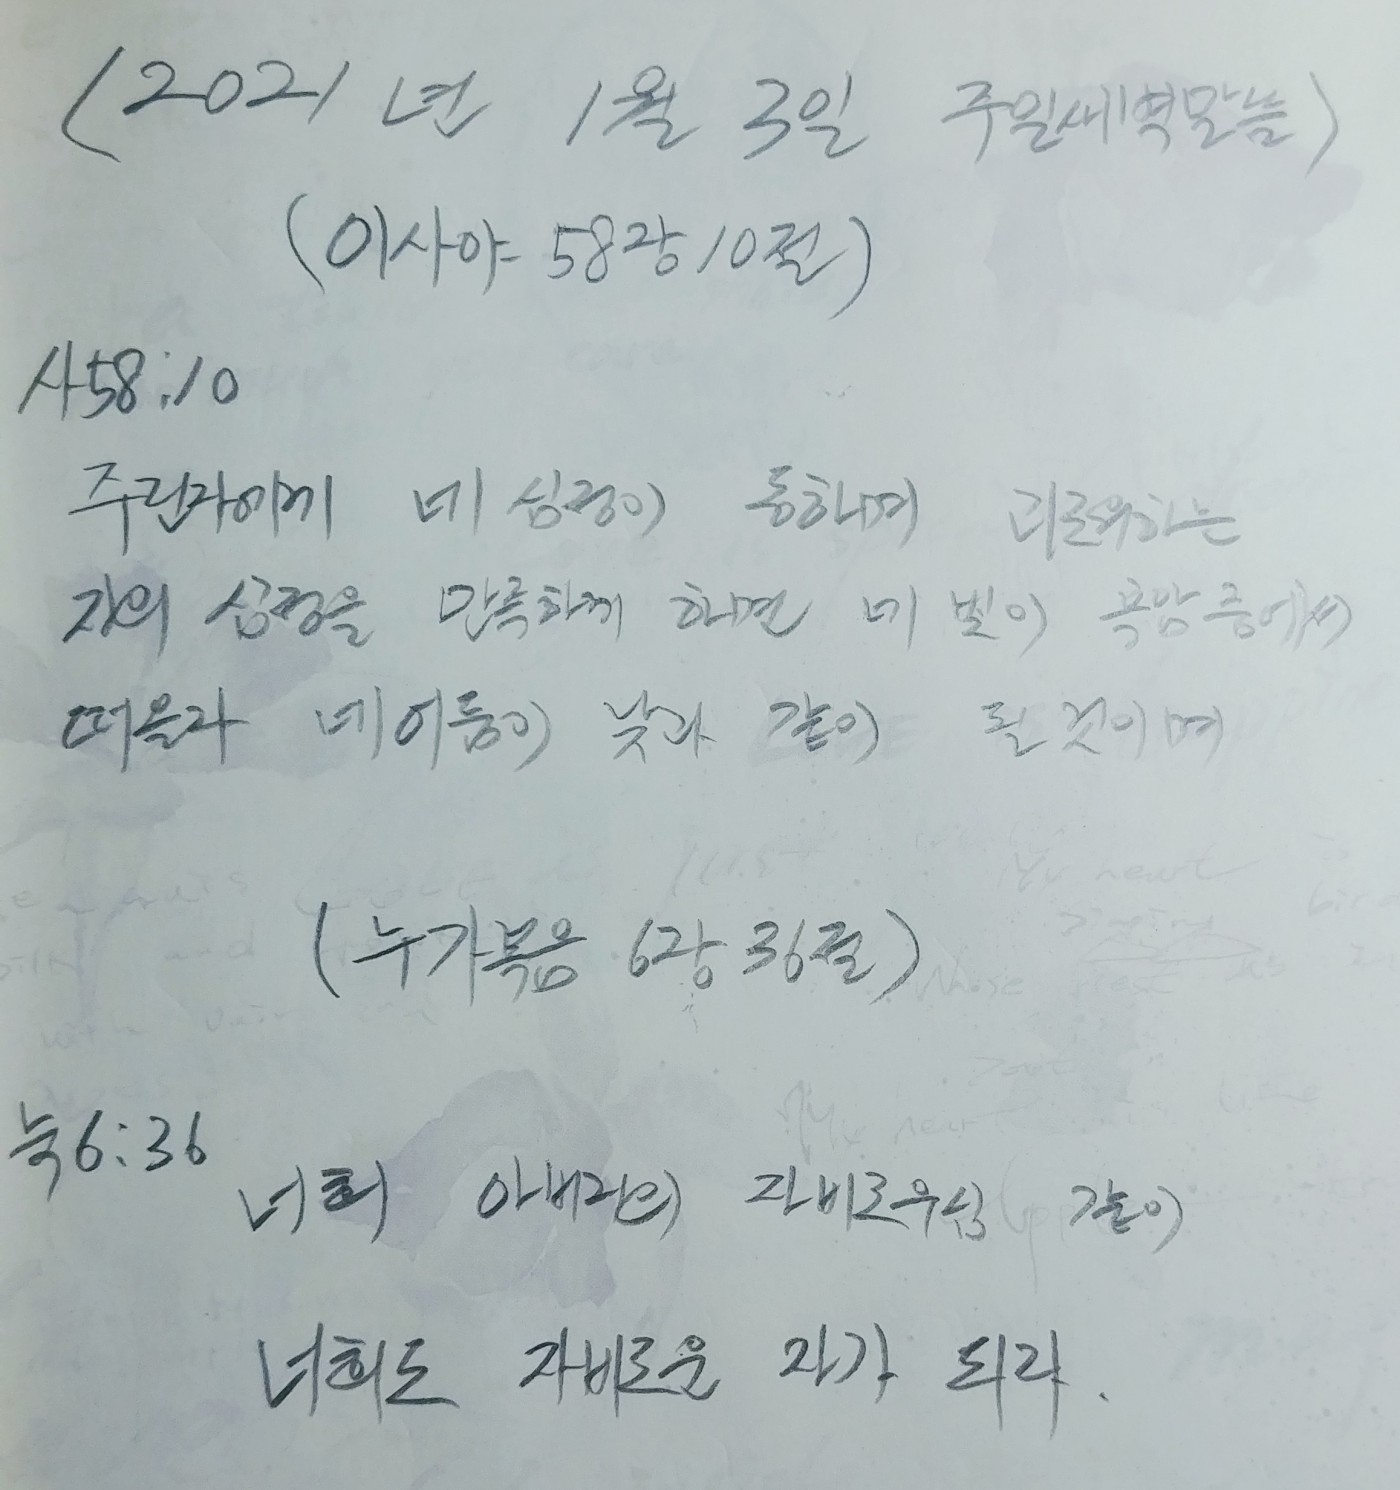 (2021년 1월 3일 주일새벽말씀)
(이사야 58장 10절)
사58:10
주린자에게 네 심정이 동하며 괴로워하는
자의 심정을 만족하게 하면 네 빛이 흑암중에서
떠올라 네 어둠이 낮과 같이 될 것이며
(누가복음 6장 36절)
눅6:36
너희 아버지의 자비로우심 같이
너희도 자비로운 자가 되라.